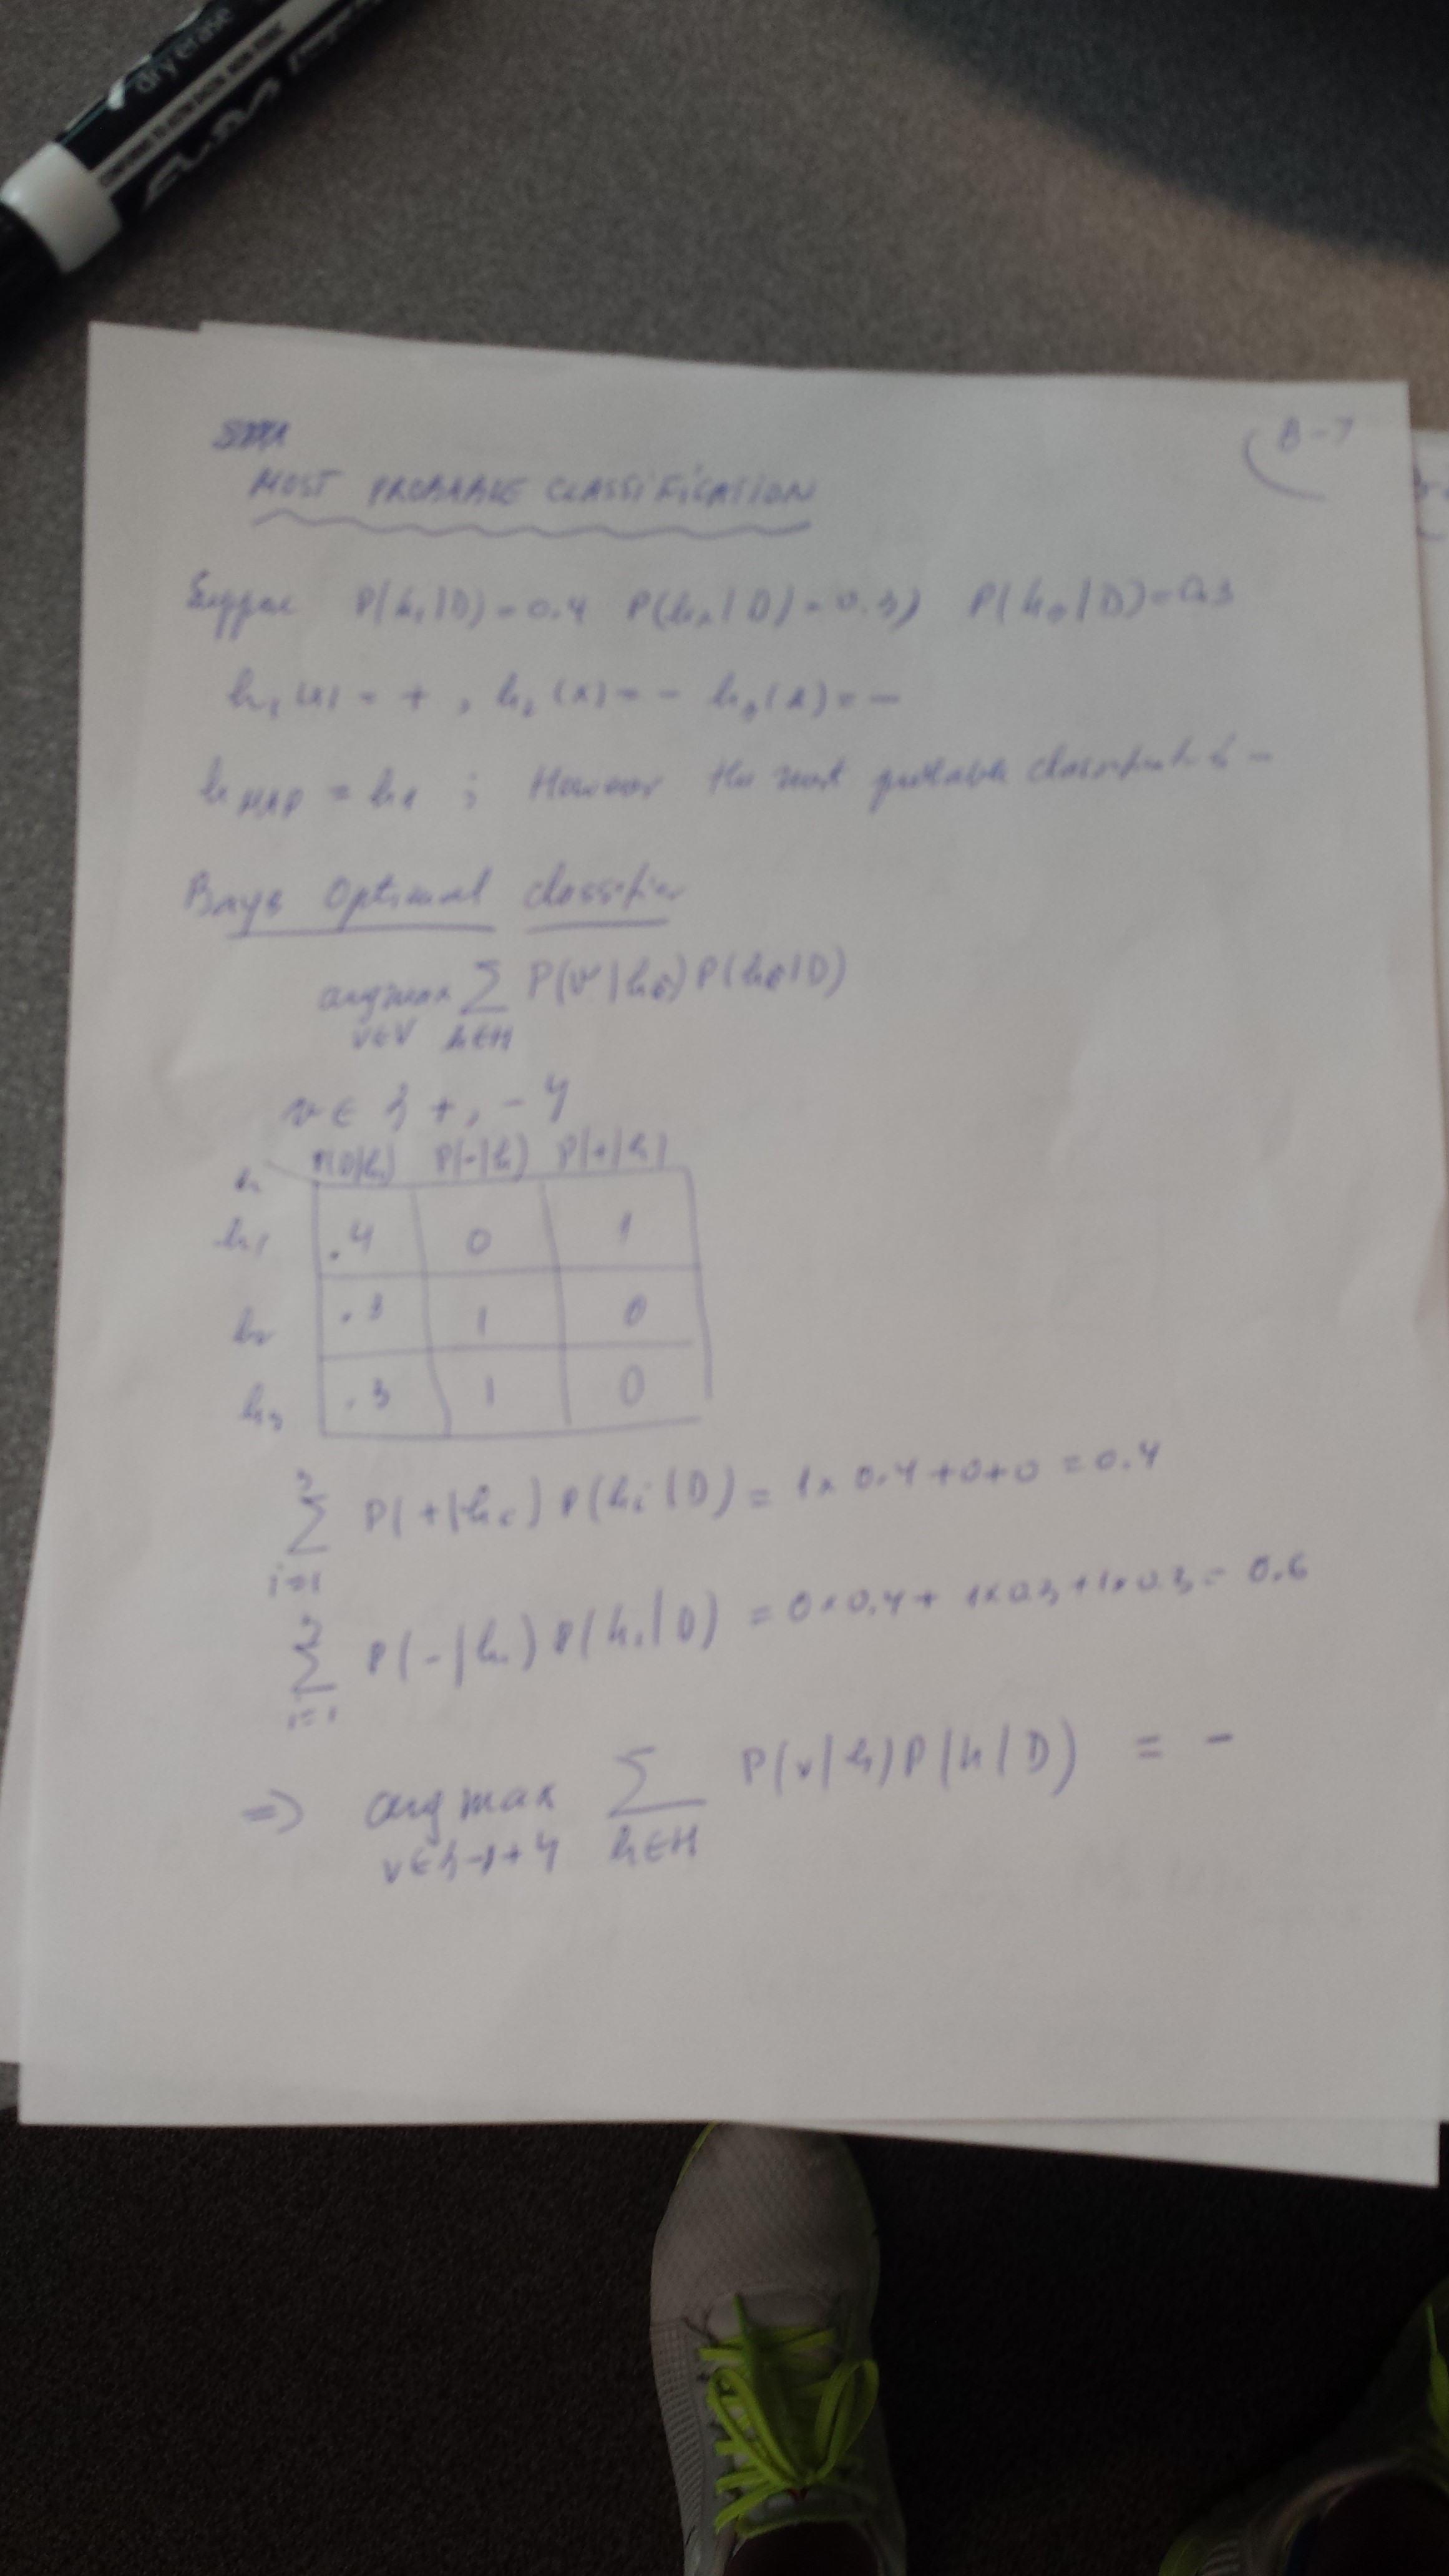 dry erase
B-7
MOST PROBABLE CLASSIFICATION
Suppose P(h₁|D)=0.4 P(h₂|D)=0.3) P(h₃|D)=0.3
h₁(x) = + , h₂(x) = - h₃(x) = -
h MAP = h1 ; However the most probable is -
Bays Optimal classifier
argmax Σ P(v|hᵢ)P(hᵢ|D)
v∈V h∈H
v ∈ { +, - }
h P(D|h) P(-|h) P(+|h)
h1 .4 0 1
h2 .3 1 0
h3 .3 1 0
3
Σ P(+|hᵢ) P(hᵢ|D) = 1x 0.4+0+0 = 0.4
i=1
3
Σ P(-|hᵢ) P(hᵢ|D) = 0x0.4+ 1x0.3+1x0.3= 0.6
i=1
=> argmax Σ P(v|h)P(h|D) = -
v∈{-,+} h∈H